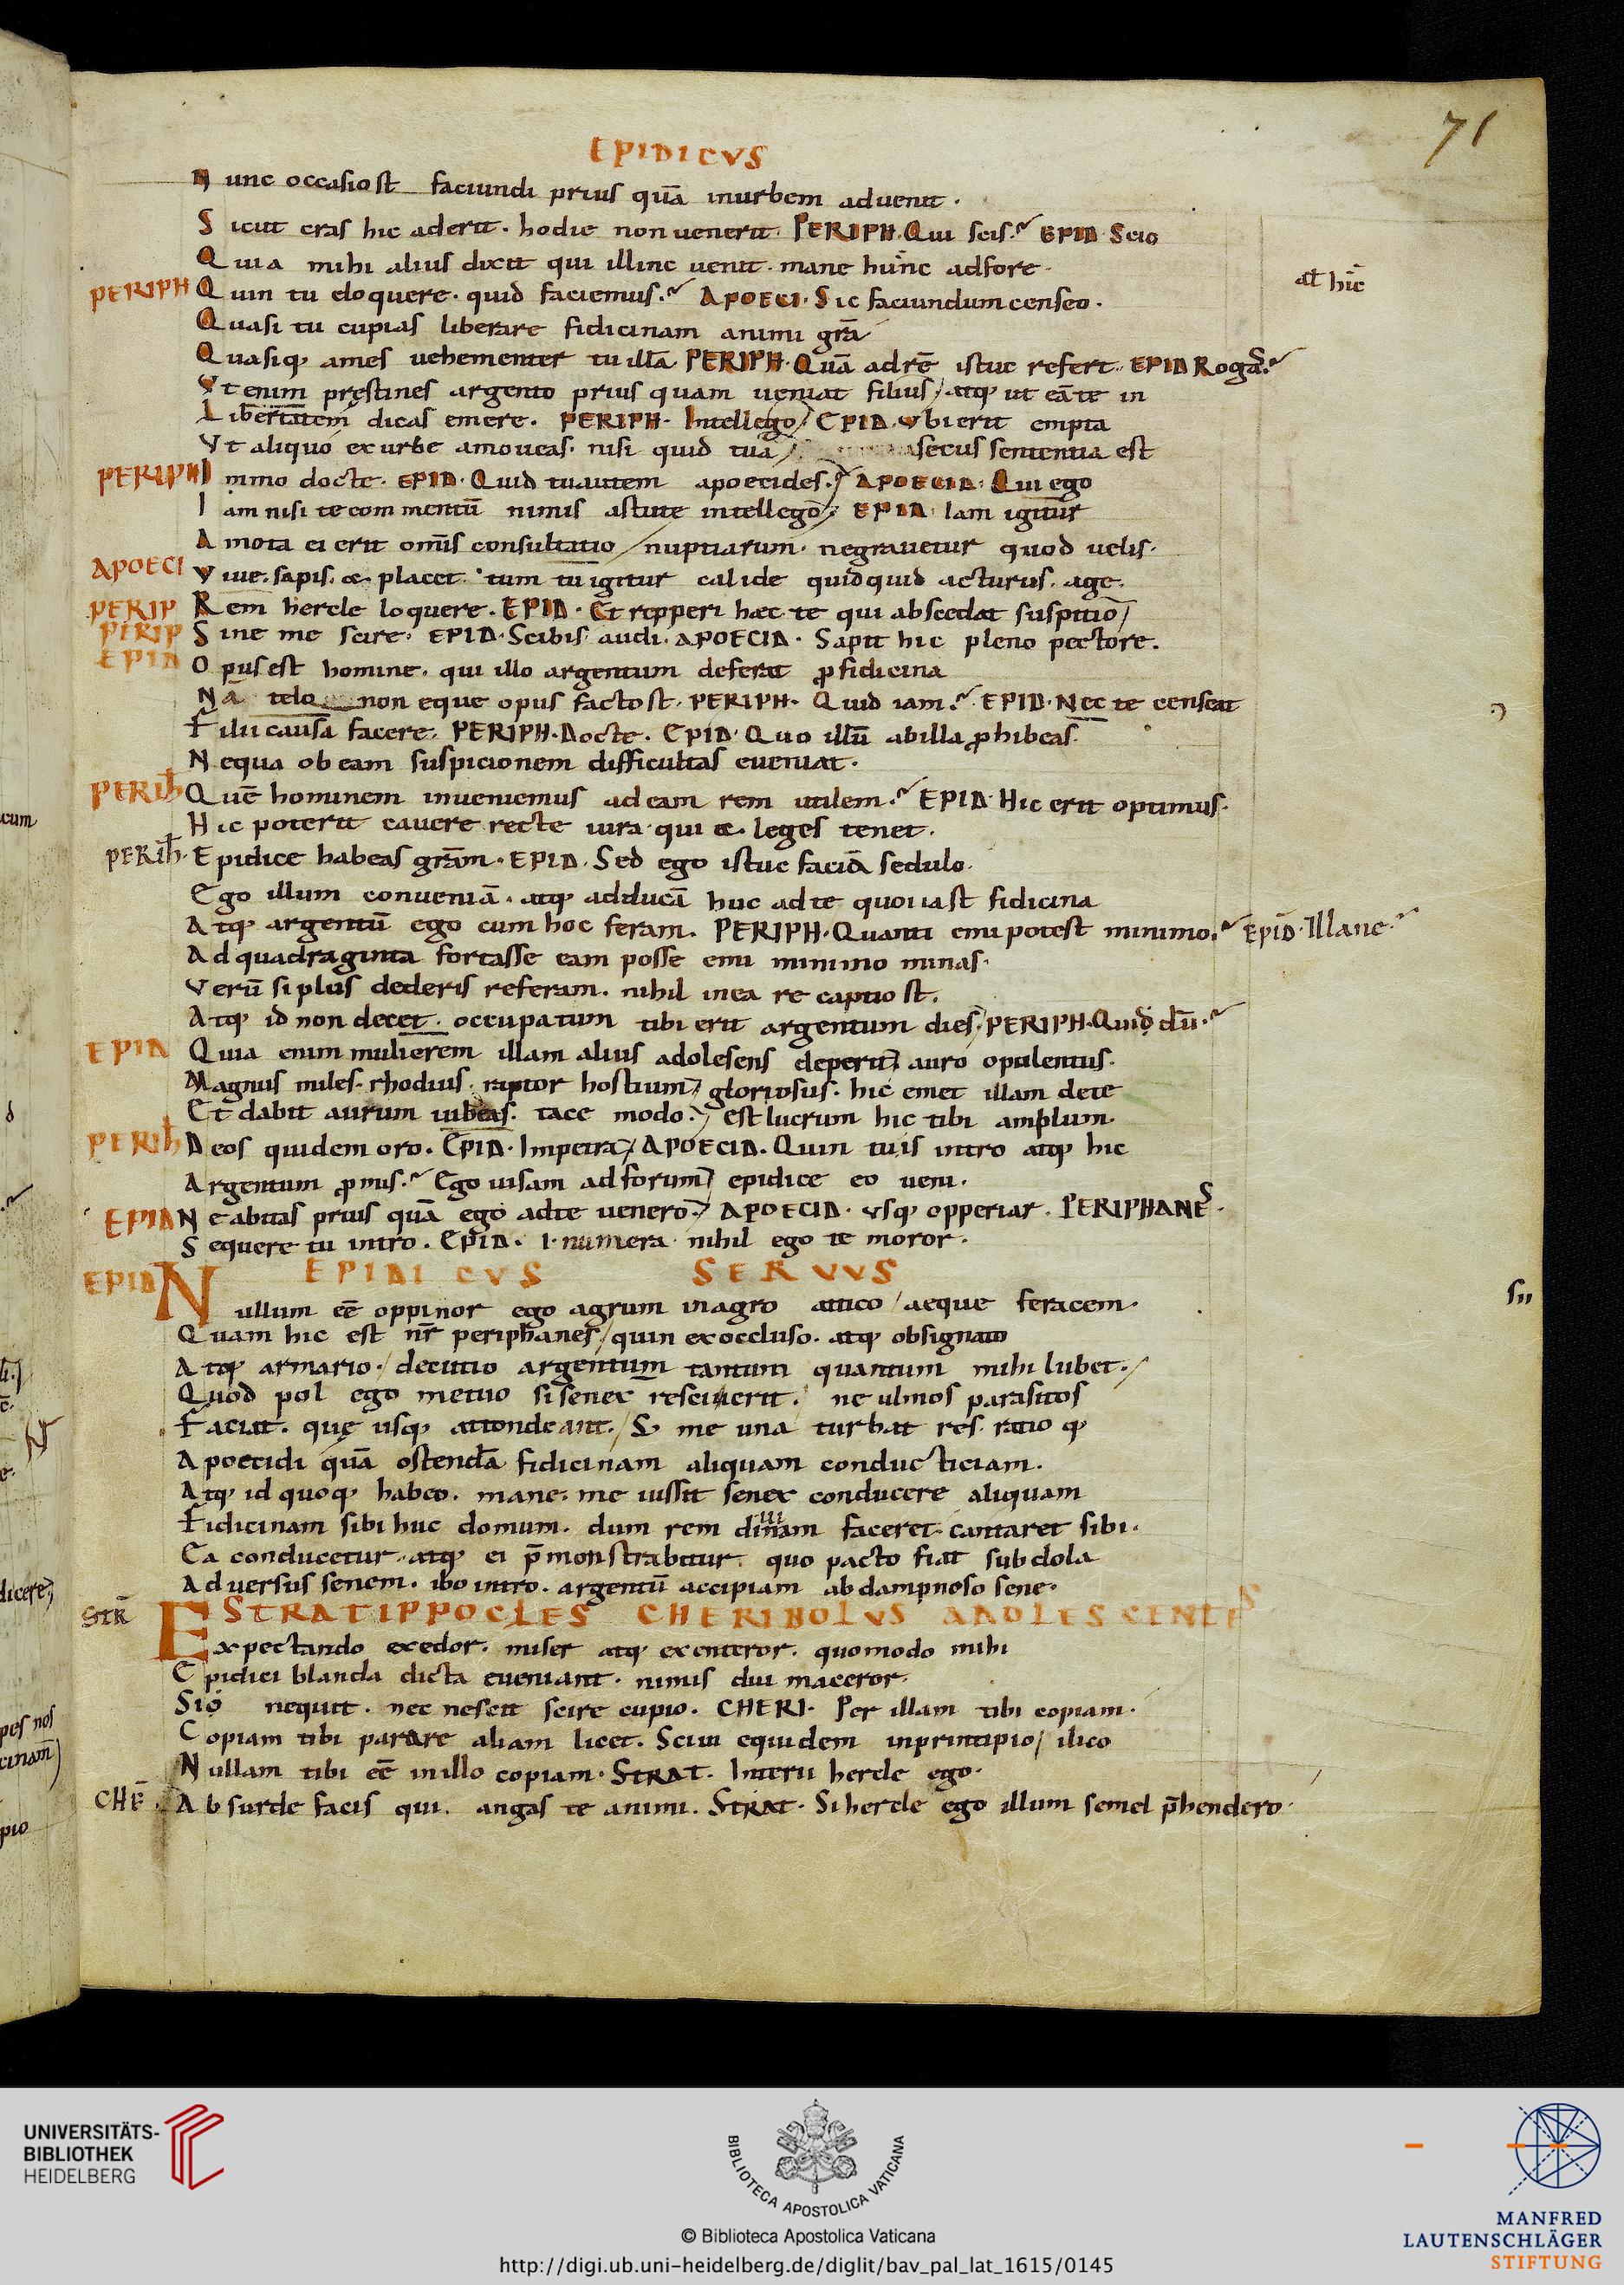 71
EPIDICVS
Nunc occasiost faciundi prius quā inurbem aduenit.
Sicut cras hic aderit. hodie nonuenerit. PERIPH. Qui scis? EPID. Scio
Quia mihi alius dixit qui illinc uenit. mane hunc adfore.
at hic
PERIPH Quin tu eloquere. quid faciemus? APOECI. Sic faciundum censeo.
Quasi tu cupias liberare fidicinam animi grā
Quasiq; ames uehementer tu illā PERIPH. Quā adrē istuc refert. EPID Rogas?
Vtenim prestines argento prius quam ueniat filius / atq; ut eāte in
Libertatem dicas emere. PERIPH. Intellego / EPID. Vbierit empta
Vt aliquo exurbe amoueas. nisi quid tua / secus sententia est
PERIPH Immo docte. EPID. Quid tuautem apoecides? APOECID. Qui ego
Iam nisi tecommentū nimis astute intellego / EPID. Iam igitur
Amota ei erit omīs consultatio / nuptiarum. negrauetur quod uelis.
APOECI Viue. sapis. & placet. tum tu igitur calide quidquid acturus. age.
PERIP Rem hercle loquere. EPID. Et repperi hæc te qui abscedat suspitio /
PERIP Sine me scire. EPID. Scibis audi. APOECID. Sapit hic pleno pectore.
EPID Opusest homine. qui illo argentum deferat ꝑfidicina
Nā telo non eque opus factost. PERIPH. Quid iam? EPID. Nec te censeat
Filii causa facere. PERIPH. Docte. EPID. Quo illū abilla ꝓhibeas.
Nequa obeam suspicionem difficultas eueniat.
PERIPH Quē hominem inueniemus adeam rem utilem? EPID. Hic erit optimus.
Hic poterit cauere recte iura qui & leges tenet.
PERIPH. Epidice habeas grām. EPID. Sed ego istuc faciā sedulo.
Ego illum conueniā. atq; adducā huc adte quoiast fidicina
Atq; argentū ego cum hoc feram. PERIPH. Quanti emi potest minimo? EPID. Illane?
Ad quadraginta fortasse eam posse emi minimo minas.
Verū siplus dederis referam. nihil inea re captiost.
Atq; id non decet. occupatum tibi erit argentum dies / PERIPH. Quid dū?
EPID Quia enim mulierem illam alius adolesens deperit / auro opulentus.
Magnus miles. rhodius. raptor hostium / gloriosus. hic emet illam dete
Et dabit aurum iubeas. tace modo. / est lucrum hic tibi amplum.
PERIPH Deos quidem oro. EPID. Impetra / APOECID. Quin tu is intro atq; hic
Argentum ꝓmis? Ego uisam adforum / epidice eo ueni.
EPID Neabitas prius quā ego adte uenero. / APOECID. Vsq; opperiar. PERIPHANES.
Sequere tu intro. EPID. I. numera. nihil ego te moror.
EPIDICVS SERVVS
EPID Nullum eē oppinor ego agrum inagro attico / aeque feracem.
Quam hic est nr̄ periphanes / quin exoccluso. atq; obsignato
Atq; armario. / decutio argentum tantum quantum mihi lubet. /
Quod pol ego metuo si senex resciuerit. ne ulmos parasitos
Faciat. quę usq; attondeant. / S; me una turbat res. ratio q;
Apoecidi quā ostendā fidicinam aliquam conducticiam.
Atq; id quoq; habeo. mane. me iussit senex conducere aliquam
Fidicinam sibi huc domum. dum rem dinam faceret. cantaret sibi.
Ea conducetur. atq; ei p̄monstrabitur. quo pacto fiat subdola
Aduersus senem. ibo intro. argentū accipiam abdampnoso sene.
STRATIPPOCLES CHERIBOLVS ADOLESCENTES
STR̄ Expectando exedor. miser atq; exenteror. quomodo mihi
Epidici blanda dicta eueniant. nimis diu maceror.
Sio nequit. nec nescit scire cupio. CHERI. Per illam tibi copiam.
Copiam tibi parare aliam licet. Sciui equidem inprintipio / ilico
Nullam tibi eē inillo copiam. STRAT. Interii hercle ego.
CHĒ. Absurde facis qui. angas te animi. STRAT. Si hercle ego illum semel p̄hendero.
UNIVERSITÄTS-
BIBLIOTHEK
HEIDELBERG
BIBLIOTECA APOSTOLICA VATICANA
© Biblioteca Apostolica Vaticana
http://digi.ub.uni-heidelberg.de/diglit/bav_pal_lat_1615/0145
MANFRED
LAUTENSCHLÄGER
STIFTUNG